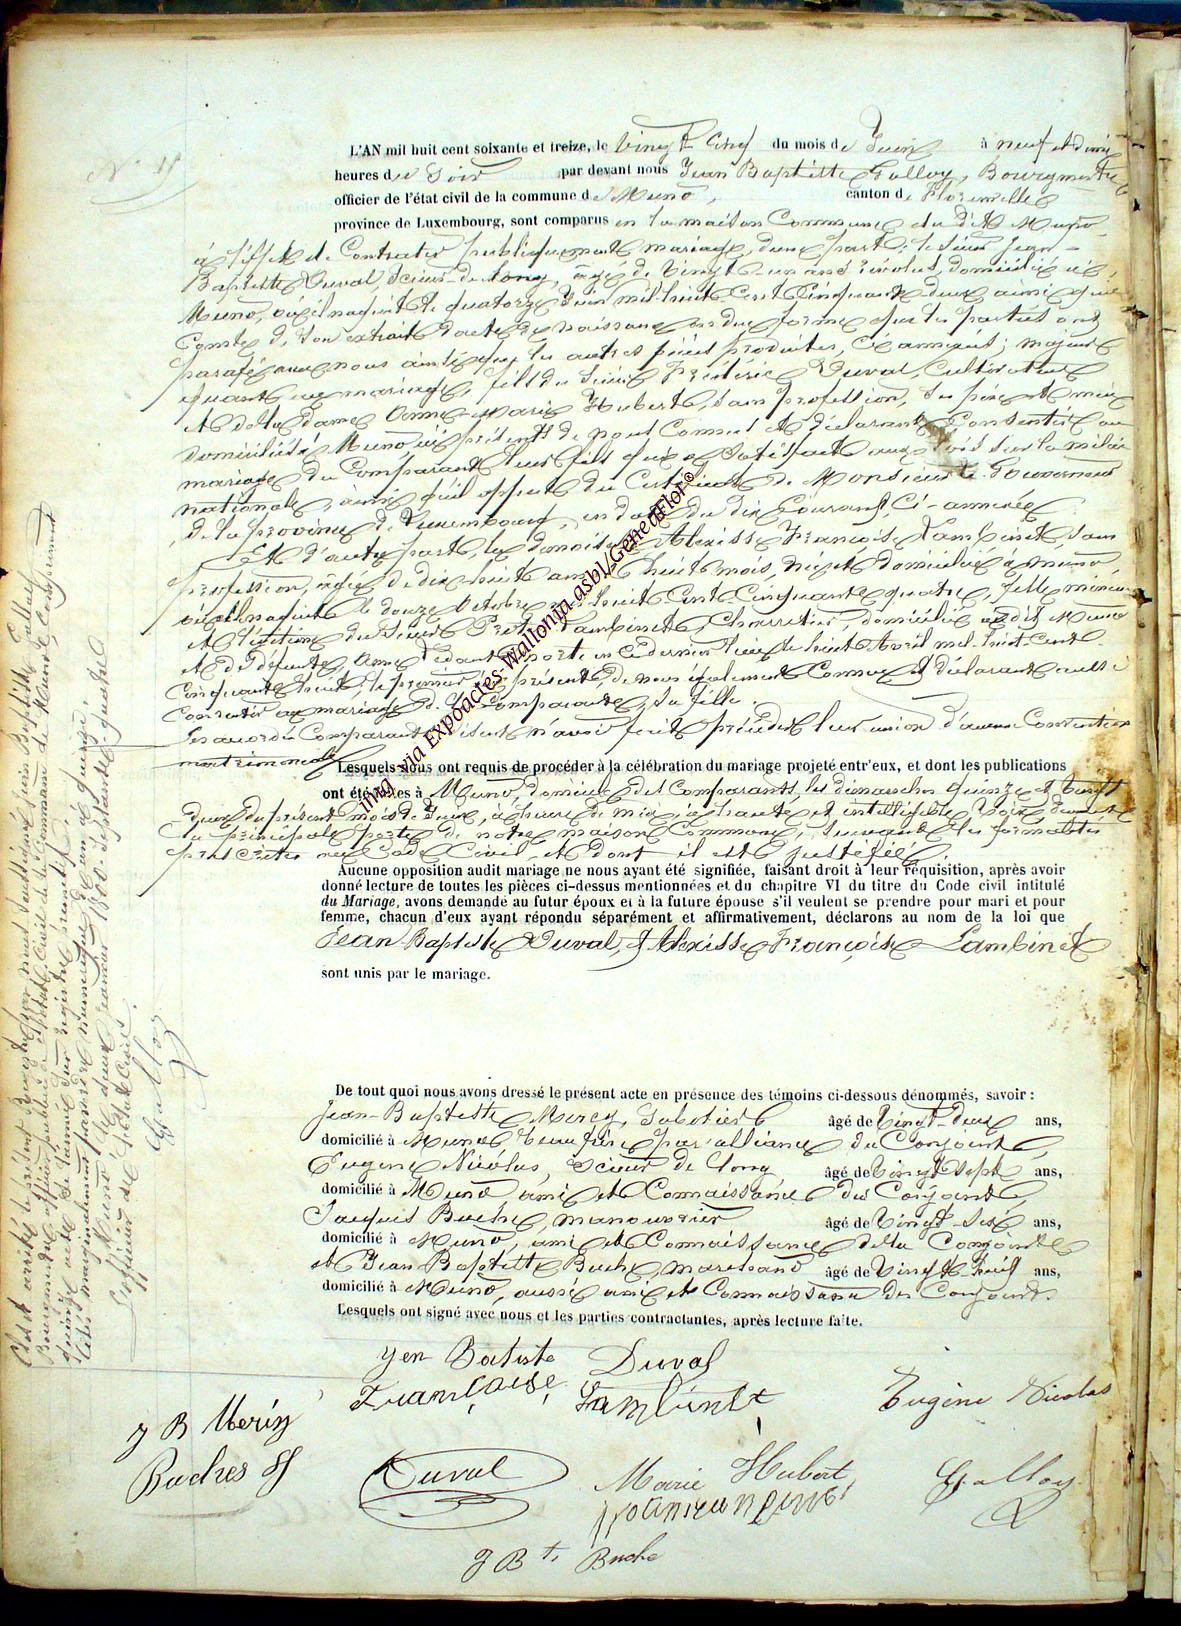 N° 11
L'AN mil huit cent soixante et treize, le Vingt Cinq du mois de Juin à neuf et demie
heures du Soir par devant nous Jean Baptiste Galloy, Bourgmestre
officier de l'état civil de la commune de Muno, canton de Florenville
province de Luxembourg, sont comparus en la maison Commune du dit Muno
à l'effet de Contracter publiquement mariage, d'une part: le Sieur Jean-
Baptiste Duval, Scieur de long, âgé de Vingt-un ans révolus, domicilié à
Muno, où il naquit le quatorze Juin mil huit Cent Cinquante deux ainsi que
Conste de Son extrait d'acte de naissance en due forme que les parties ont
parafé avec nous ainsi que les autres pièces produites, Ci annexées; majeur
quant au mariage, fils du Sieur Frédéric Duval, Cultivateur
et de la dame Anne-Marie Hubert, Sans profession, Ses père et mère
domiciliés à Muno ici présents de nous Connus et déclarant Consentir au
mariage du Comparant leur fils qui a Satisfait aux lois sur la milice
nationale, ainsi qu'il appert du Certificat de Monsieur le Gouverneur
de la province de Luxembourg, en date du dix Courant, Ci-annexée
Et d'autre part, la demoiselle Alexisse Françoise Lambinet Sans
profession, âgée de dix huit ans et huit mois, née et domiciliée à Muno,
où elle naquit le douze Octobre mil huit Cent Cinquante quatre, fille mineure
et légitime du Sieur Lambinet, Charretier, domicilié au dit Muno
et de défunte Anne morte en ce dernier lieu le huit Avril mil huit Cent
Cinquante huit, le premier ici présent, de nous également Connu et déclarant aussi
Consentir au mariage de la Comparante, Sa fille.
Les accordés Comparants disent n'avoir fait précéder leur union d'aucune Convention
matrimoniale
Lesquels nous ont requis de procéder à la célébration du mariage projeté entr'eux, et dont les publications
ont été faites à Muno, domicile des Comparants, les dimanches quinze et Vingt
deux du présent mois de Juin, à l'heure de midi, à haute et intelligible Voix devant
la principale porte de notre maison Commune, Suivant les formalités
prescrites au Code Civil et dont il est justifié.
Aucune opposition audit mariage ne nous ayant été signifiée, faisant droit à leur réquisition, après avoir
donné lecture de toutes les pièces ci-dessus mentionnées et du chapitre VI du titre du Code civil intitulé
du Mariage, avons demandé au futur époux et à la future épouse s'il veulent se prendre pour mari et pour
femme, chacun d'eux ayant répondu séparément et affirmativement, déclarons au nom de la loi que
Jean-Baptiste Duval, et Alexisse Françoise Lambinet
sont unis par le mariage.
De tout quoi nous avons dressé le présent acte en présence des témoins ci-dessous dénommés, savoir :
Jean-Baptiste Sabotier âgé de Vingt-deux ans,
domicilié à Muno beau frère par alliance du Conjoint,
Eugene Nicolas, Scieur de long âgé de Vingt Sept ans,
domicilié à Muno ami et Connaissance des Conjoints,
Jacques Buche, manouvrier âgé de Vingt-Six ans,
domicilié à Muno, ami et Connaissance de la Conjointe
et Jean Baptiste Buche, marchand âgé de Vingt-huit ans,
domicilié à Muno, aussi ami et Connaissance des Conjoints.
Lesquels ont signé avec nous et les parties contractantes, après lecture faite.
Duval
Lambinet
Eugène Nicolas
J B
Buches
Duval
Marie Hubert
Galloy
J Bte Buche
Clos et arrêté le présent Registre par nous soussigné Jean Baptiste Galloy
Bourgmestre officier public de l'état Civil de la Commune de Muno,
Muno le deux Janvier 1800 Septante-quatre
L'officier de l'état Civil.
Galloy
img via Expoactes-Wallonia asbl/Geneaflor©